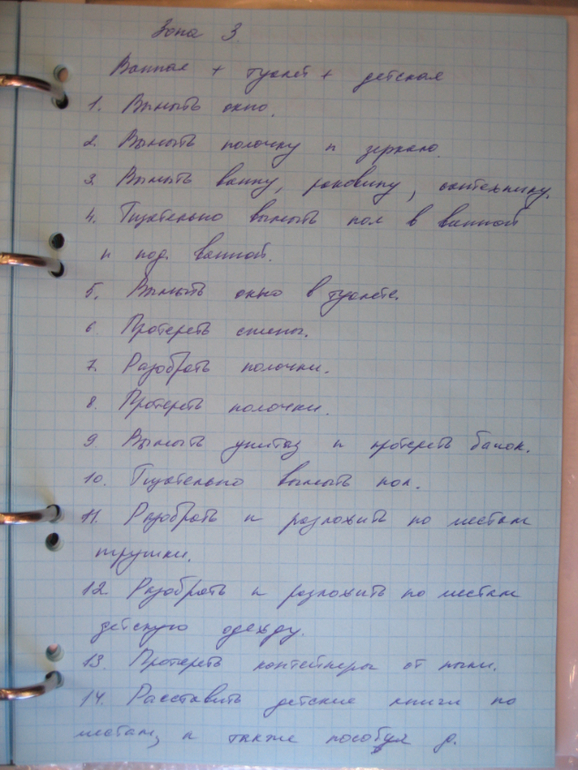 Зона 3.
Ванная + туалет + детская
1. Вымыть окно.
2. Вымыть полочку и зеркало.
3. Вымыть ванну, раковину, сантехнику.
4. Тщательно вымыть пол в ванной
и под ванной.
5. Вымыть окно в туалете.
6 Протереть стены.
7. Разобрать полочки.
8. Протереть полочки.
9 Вымыть унитаз и протереть бачок.
10. Тщательно вымыть пол.
11. Разобрать и разложить по местам
игрушки.
12. Разобрать и разложить по местам
детскую одежду.
13. Протереть контейнеры от пыли.
14. Расставить детские книги по
местам, а также пособия